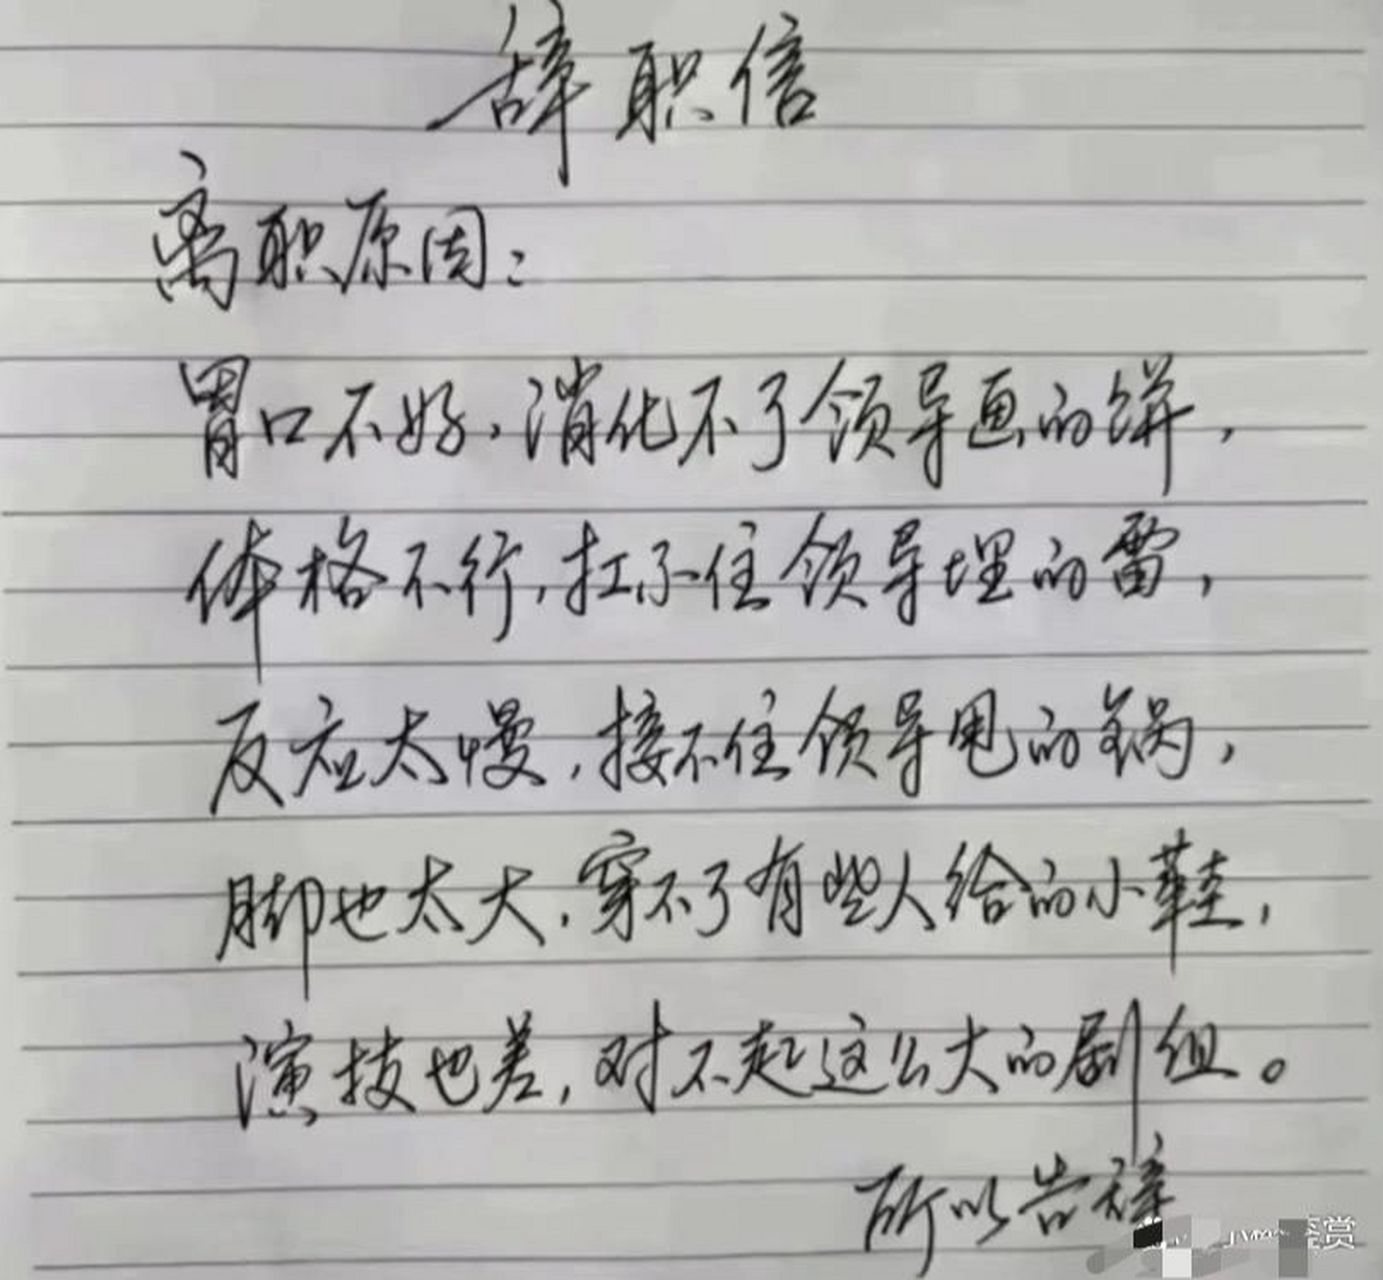 辞职信
离职原因：
胃口不好，消化不了领导画的饼，
体格不行，扛不住领导埋的雷，
反应太慢，接不住领导甩的锅，
脚也太大，穿不了有些人给的小鞋，
演技也差，对不起这么大的剧组。
所以告辞
赏